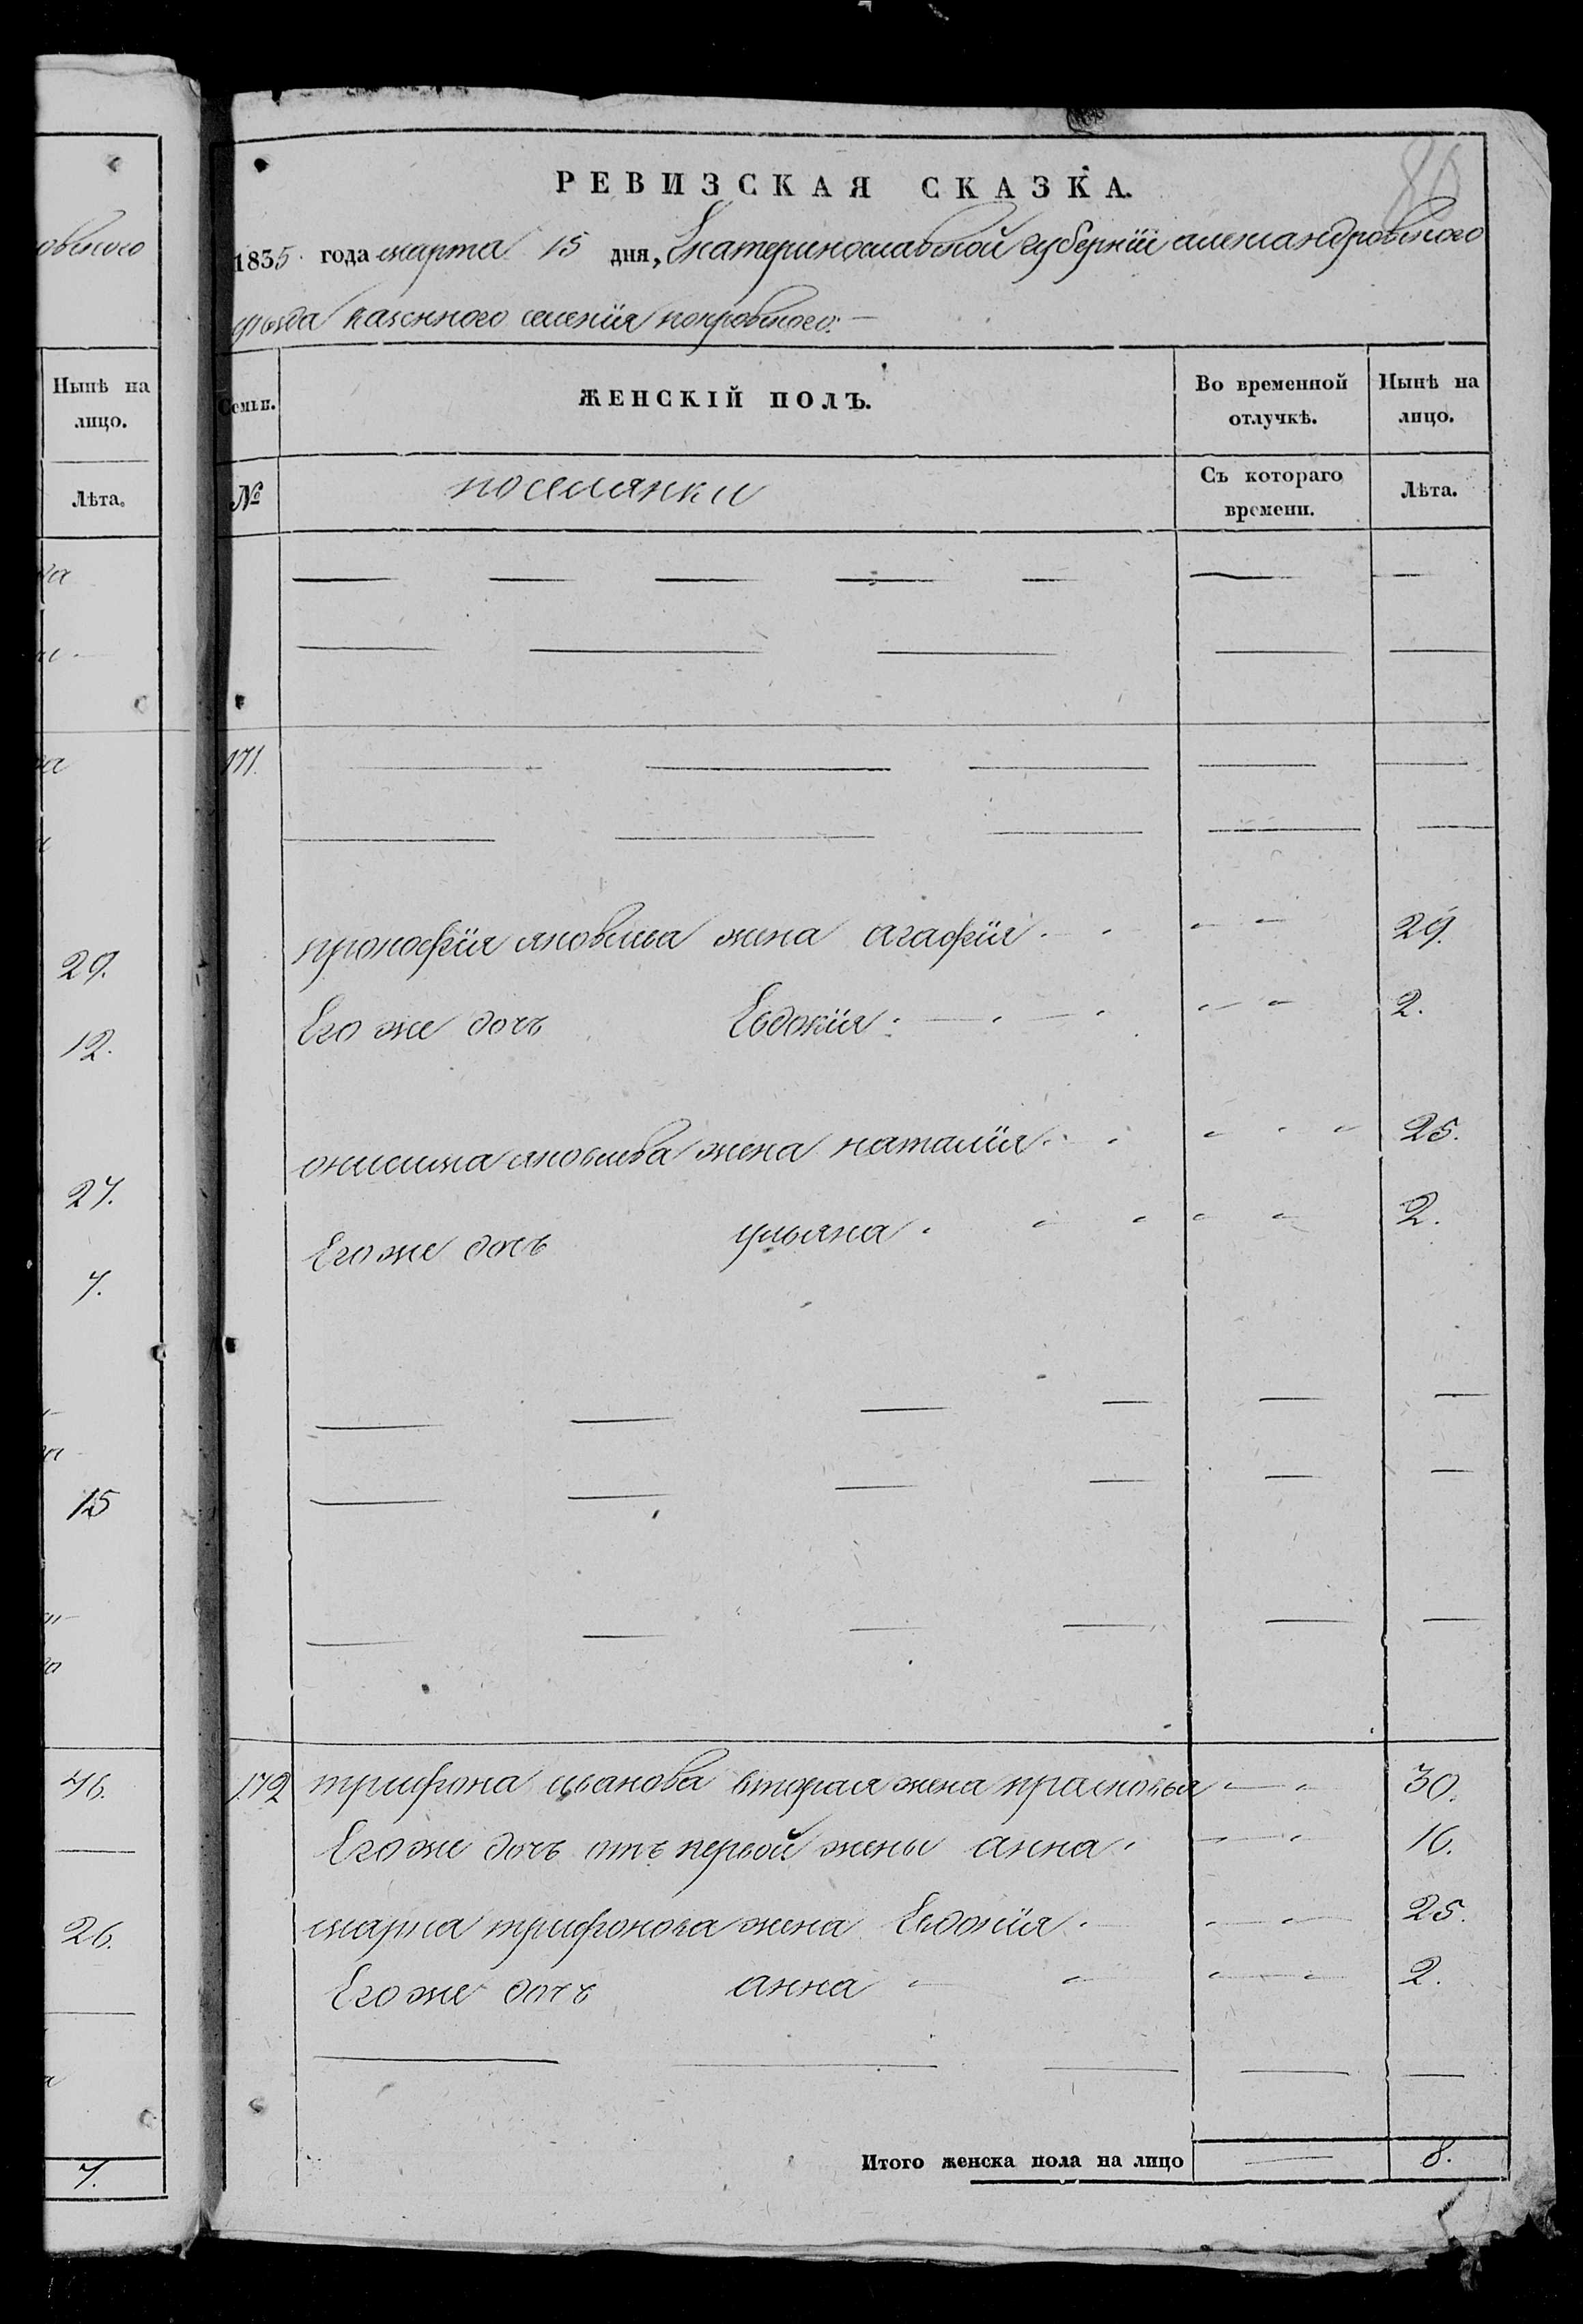 овского
Нынѣ на
лицо.
Лѣта.
29.
12.
27.
7.
15
46.
26.
7.
80
РЕВИЗСКАЯ СКАЗКА.
1835 года марта 15 дня, Екатеринославской губерніи александровского
уѣзда казенного селенія покровского.
Семьи.
ЖЕНСКІЙ ПОЛЪ.
Во временной отлучкѣ.
Нынѣ на лицо.
№
поселянки
Съ котораго времени.
Лѣта.
171.
прокофія яковлева жена агафія 29.
Его же дочь Евдокія 2.
онисима яковлева жена наталія 25.
Его же дочь ульяна 2.
172 трифона иванова вторая жена прасковья 30.
Его же дочь отъ первой жены анна 16.
марка трифонова жена Евдокія 25.
Его же дочь анна 2.
Итого женска пола на лицо 8.